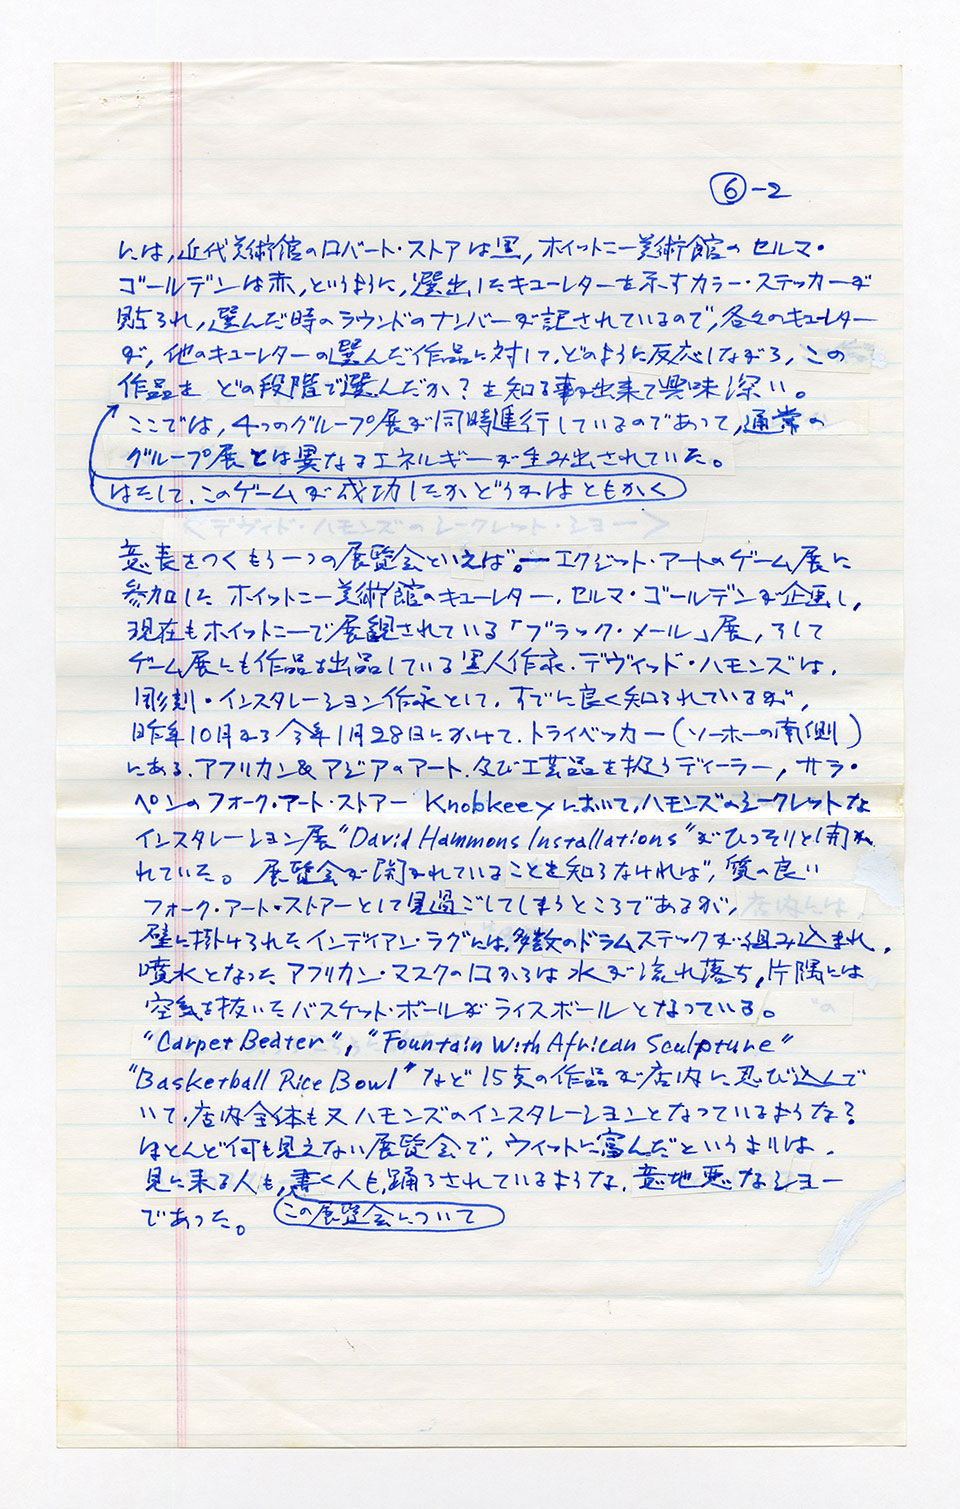 ⑥-2
には，近代美術館のロバート・ストアは黒，ホイットニー美術館のセルマ・
ゴールデンは赤，というように，選出したキューレターを示すカラー・ステッカーが
貼られ，選んだ時のラウンドのナンバーが記されているので，各々のキューレター
が，他のキューレターの選んだ作品に対して，どのように反応しながら，この
作品を どの段階で選んだか？を知る事が出来て興味深い。
ここでは，4つのグループ展が同時進行しているのであって，通常の
グループ展とは異なるエネルギーが生み出されていた。
はたして，このゲームが成功したかどうかはともかく
＜デヴィド・ハモンズのシークレット・ショー＞
意表をつくもう一つの展覧会といえば。― エクジット・アートのゲーム展に
参加した ホイットニー美術館のキューレター，セルマ・ゴールデンが企画し，
現在もホイットニーで展観されている「ブラック・メール」展，そして
ゲーム展にも作品を出品している黒人作家・デヴィッド・ハモンズは，
彫刻・インスタレーション作家として，すでに良く知られているが，
昨年10月から今年1月28日にかけて，トライベッカー（ソーホーの南側）
にある，アフリカン&アジアのアート，及び工芸品を扱うディーラー，サラ・
ペンのフォーク・アート・ストアー Knobkeeyにおいて，ハモンズのシークレットな
インスタレーション展“David Hammons Installations”がひっそりと開か
れていた。 展覧会が開かれていることを知らなければ，質の良い
フォーク・アート・ストアーとして見過ごしてしまうところであるが，店内には，
壁に掛けられたインディアン・ラグには，多数のドラムスティックが組み込まれ，
噴水となったアフリカン・マスクの口からは水が流れ落ち，片隅には
空気を抜いたバスケット・ボールがライスボールとなっている。
“Carpet Beater”，“Fountain With African Sculpture”
“Basketball Rice Bowl”など15点の作品が店内に忍び込んで
いて，店内全体も又ハモンズのインスタレーションとなっているような？
ほとんど何も見えない展覧会で，ウィットに富んだというよりは，
見に来る人も，書く人も，踊らされているような，意地悪なショー
であった。 この展覧会について